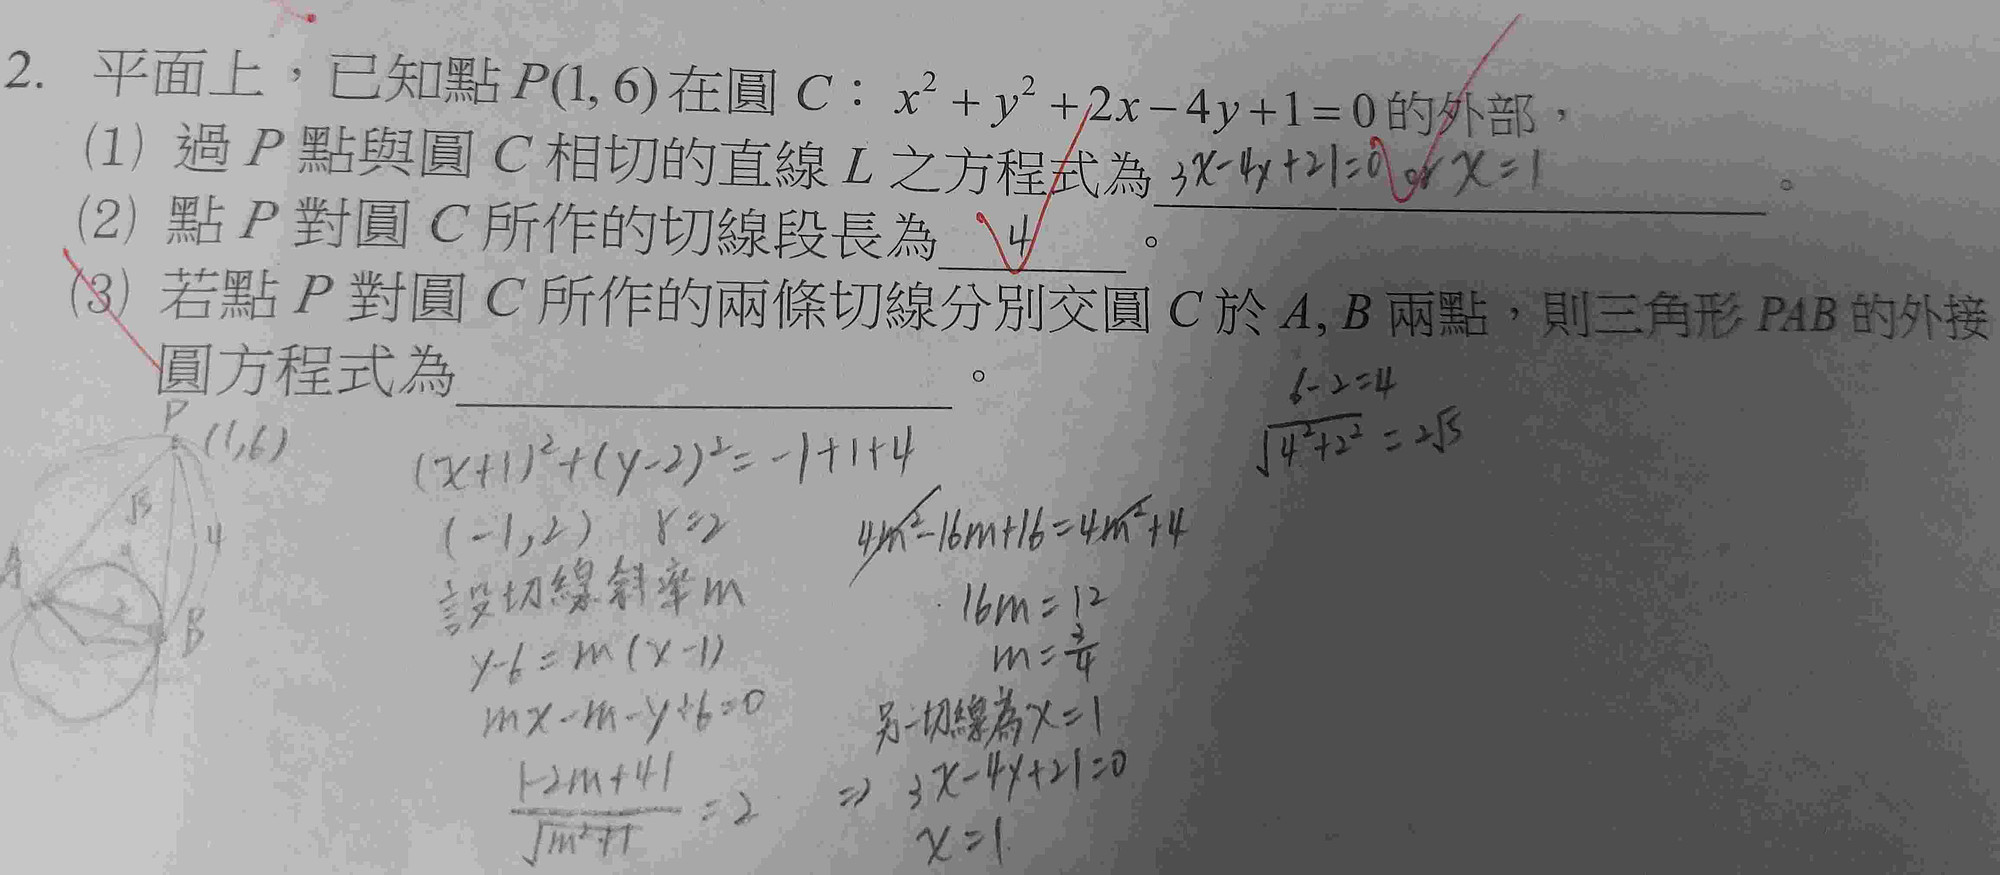 2. 平面上，已知點 P(1, 6) 在圓 C：x² + y² + 2x − 4y + 1 = 0 的外部，
(1) 過 P 點與圓 C 相切的直線 L 之方程式為 3x-4y+21=0 or x=1 。
(2) 點 P 對圓 C 所作的切線段長為 4 。
(3) 若點 P 對圓 C 所作的兩條切線分別交圓 C 於 A, B 兩點，則三角形 PAB 的外接
圓方程式為 。
6-2=4
√(4²+2²) = 2√5
P
(1,6)
4
A
B
(x+1)²+(y-2)²=-1+1+4
(-1,2) r=2
設切線斜率m
y-6=m(x-1)
mx-m-y+6=0
|-2m+4|/√(m²+1) = 2
4m²-16m+16=4m²+4
16m=12
m=3/4
另一切線為x=1
⇒ 3x-4y+21=0
x=1